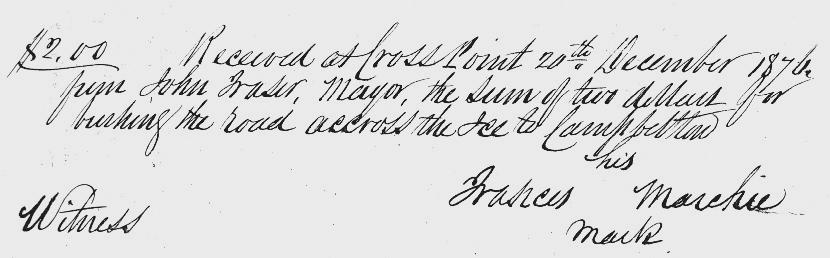 $2.00 Received at Cross Point 20th December 1876
from John Fraser, Mayor, the sum of two dollars for
bushing the road accross the Ice to Campbellton
his
Frances Marchie
mark
Witness